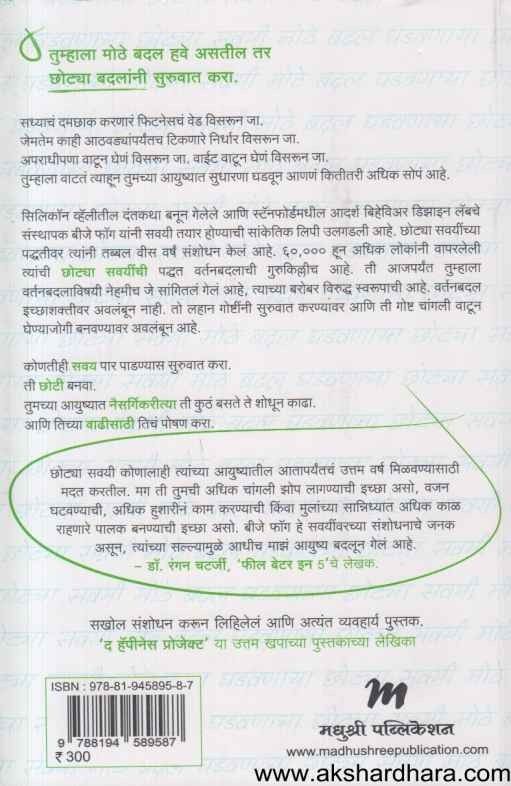 तुम्हाला मोठे बदल हवे असतील तर
छोट्या बदलांनी सुरुवात करा.
सध्याचं दमछाक करणारं फिटनेसचं वेड विसरून जा.
जेमतेम काही आठवड्यांपर्यंतच टिकणारे निर्धार विसरून जा.
अपराधीपणा वाटून घेणं विसरून जा. वाईट वाटून घेणं विसरून जा.
तुम्हाला वाटतं त्याहून तुमच्या आयुष्यात सुधारणा घडवून आणणं कितीतरी अधिक सोपं आहे.
सिलिकॉन व्हॅलीतील दंतकथा बनून गेलेले आणि स्टॅनफोर्डमधील आदर्श बिहेविअर डिझाइन लॅबचे
संस्थापक बीजे फॉग यांनी सवयी तयार होण्याची सांकेतिक लिपी उलगडली आहे. छोट्या सवयींच्या
पद्धतीवर त्यांनी तब्बल वीस वर्षं संशोधन केलं आहे. ६०,००० हून अधिक लोकांनी वापरलेली
त्यांची छोट्या सवयींची पद्धत वर्तनबदलाची गुरुकिल्लीच आहे. ती आजपर्यंत तुम्हाला
वर्तनबदलाविषयी नेहमीच जे सांगितलं गेलं आहे, त्याच्या बरोबर विरुद्ध स्वरूपाची आहे. वर्तनबदल
इच्छाशक्तीवर अवलंबून नाही. तो लहान गोष्टींनी सुरुवात करण्यावर आणि ती गोष्ट चांगली वाटून
घेण्याजोगी बनवण्यावर अवलंबून आहे.
कोणतीही सवय पार पाडण्यास सुरुवात करा.
ती छोटी बनवा.
तुमच्या आयुष्यात नैसर्गिकरीत्या ती कुठं बसते ते शोधून काढा.
आणि तिच्या वाढीसाठी तिचं पोषण करा.
छोट्या सवयी कोणालाही त्यांच्या आयुष्यातील आतापर्यंतचं उत्तम वर्ष मिळवण्यासाठी
मदत करतील. मग ती तुमची अधिक चांगली झोप लागण्याची इच्छा असो, वजन
घटवण्याची, अधिक हुशारीनं काम करण्याची किंवा मुलांच्या सान्निध्यात अधिक काळ
राहणारे पालक बनण्याची इच्छा असो. बीजे फॉग हे सवयींवरच्या संशोधनाचे जनक
असून, त्यांच्या सल्ल्यामुळे आधीच माझं आयुष्य बदलून गेलं आहे.
– डॉ. रंगन चटर्जी, 'फील बेटर इन 5'चे लेखक.
सखोल संशोधन करून लिहिलेलं आणि अत्यंत व्यवहार्य पुस्तक.
'द हॅपीनेस प्रोजेक्ट' या उत्तम खपाच्या पुस्तकाच्या लेखिका
ISBN : 978-81-945895-8-7
9 788194 589587
₹ 300
मधुश्री पब्लिकेशन
www.madhushreepublication.com
www.akshardhara.com